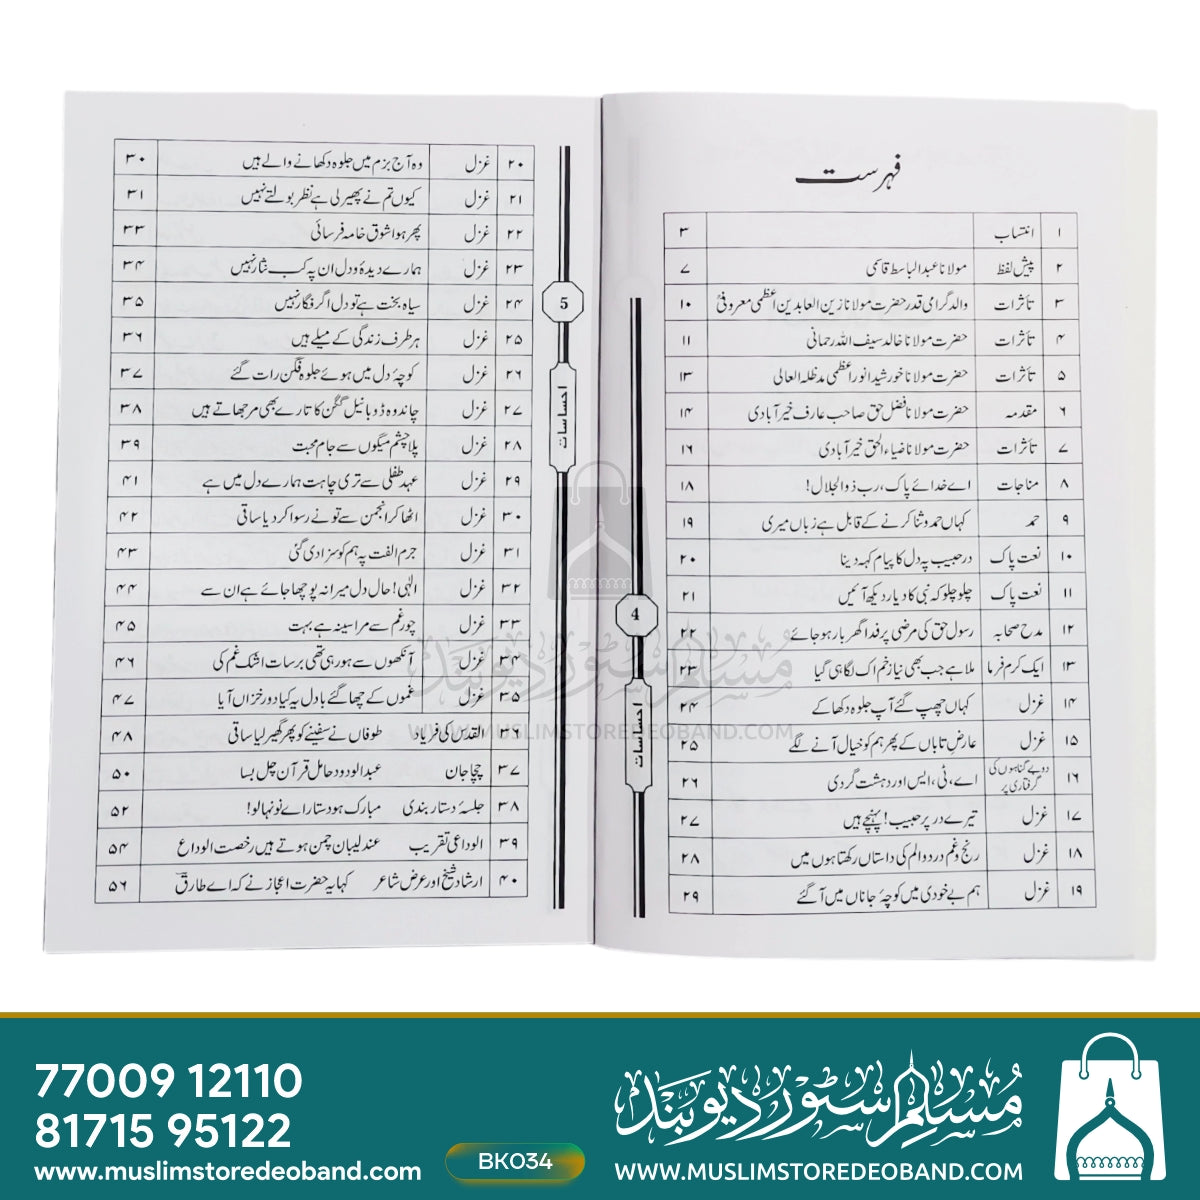 فہرست
۱ انتساب ۳
۲ پیش لفظ مولانا عبدالباسط قاسمی ۷
۳ تأثرات والد گرامی قدر حضرت مولانا زین العابدین اعظمی معروفیؒ ۱۰
۴ تأثرات حضرت مولانا خالد سیف اللہ رحمانی ۱۱
۵ تأثرات حضرت مولانا خورشید انور اعظمی مدظلہ العالی ۱۳
۶ مقدمہ حضرت مولانا فضل حق صاحب عارف خیرآبادی ۱۴
۷ تأثرات حضرت مولانا ضیاء الحق خیرآبادی ۱۶
۸ مناجات اے خدائے پاک، رب ذوالجلال! ۱۸
۹ حمد کہاں حمد و ثنا کرنے کے قابل ہے زباں میری ۱۹
۱۰ نعت پاک در حبیب پہ دل کا پیام کہہ دینا ۲۰
۱۱ نعت پاک چلو چلو کہ نبی کا دیار دیکھ آئیں ۲۱
۱۲ مدح صحابہ رسول حق کی مرضی پر فدا گھر بار ہو جائے ۲۲
۱۳ ایک کرم فرما ملا ہے جب بھی نیا زخم اک لگا ہی گیا ۲۳
۱۴ غزل کہاں چھپ گئے آپ جلوہ دکھا کے ۲۴
۱۵ غزل عارضِ تاباں کے پھر ہم کو خیال آنے لگے ۲۵
۱۶ دو بے گناہوں کی گرفتاری پر اے، ٹی، ایس اور دہشت گردی ۲۶
۱۷ غزل تیرے در پر حبیب! پہنچے ہیں ۲۷
۱۸ غزل رنج و غم درد و الم کی داستاں رکھتا ہوں میں ۲۸
۱۹ غزل ہم بے خودی میں کوچۂ جاناں میں آگئے ۲۹
4
احساسات
۲۰ غزل وہ آج بزم میں جلوہ دکھانے والے ہیں ۳۰
۲۱ غزل کیوں تم نے پھیر لی ہے نظر بولتے نہیں ۳۱
۲۲ غزل پھر ہوا شوق خامہ فرسائی ۳۳
۲۳ غزل ہمارے دیدۂ و دل ان پہ کب نثار نہیں ۳۴
۲۴ غزل سیاہ بخت ہے تو دل اگر فگار نہیں ۳۵
۲۵ غزل ہر طرف زندگی کے میلے ہیں ۳۶
۲۶ غزل کوچۂ دل میں ہوئے جلوہ فگن رات گئے ۳۷
۲۷ غزل چاند وہ ڈوبا نیل گگن کا تارے بھی مرجھاتے ہیں ۳۸
۲۸ غزل پلا چشم میگوں سے جام محبت ۳۹
۲۹ غزل عہد طفلی سے تری چاہت ہمارے دل میں ہے ۴۱
۳۰ غزل اٹھا کر انجمن سے تو نے رسوا کر دیا ساقی ۴۲
۳۱ غزل جرم الفت پہ ہم کو سزا دی گئی ۴۳
۳۲ غزل الٰہی! حال دل میرا نہ پوچھا جائے ہے ان سے ۴۴
۳۳ غزل چور غم سے مرا سینہ ہے بہت ۴۵
۳۴ غزل آنکھوں سے ہو رہی تھی برسات اشک غم کی ۴۶
۳۵ غزل غموں کے چھا گئے بادل یہ کیا دور خزاں آیا ۴۷
۳۶ القدس کی فریاد طوفاں نے سفینے کو پھر گھیر لیا ساقی ۴۸
۳۷ چچا جان عبدالودود حامل قرآن چل بسا ۵۰
۳۸ جلسۂ دستار بندی مبارک ہو دستار اے نونہالو! ۵۲
۳۹ الوداعی تقریب عندلیبان چمن ہوتے ہیں رخصت الوداع ۵۴
۴۰ ارشاد شیخ اور عرض شاعر کہا یہ حضرت اعجاز نے کہ اے طارقؔ ۵۶
5
احساسات
مسلم سٹور دیوبند
WWW.MUSLIMSTOREDEOBAND.COM
77009 12110
81715 95122
www.muslimstoredeoband.com
BK034
مسلم سٹور دیوبند
WWW.MUSLIMSTOREDEOBAND.COM